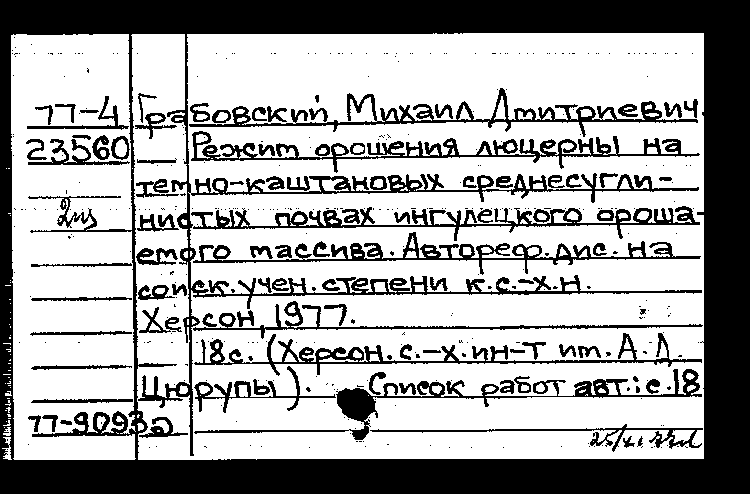 77-4 Грабовский, Михаил Дмитриевич.
23560 Режим орошения люцерны на
темно-каштановых среднесугли-
нистых почвах ингулецкого ороша-
емого массива. Автореф. дис. на
соиск. учен. степени к.с.-х.н.
Херсон, 1977.
18с. (Херсон. с.-х. ин-т им. А.Д.
Цюрупы). Список работ авт.: с.18
77-9093а